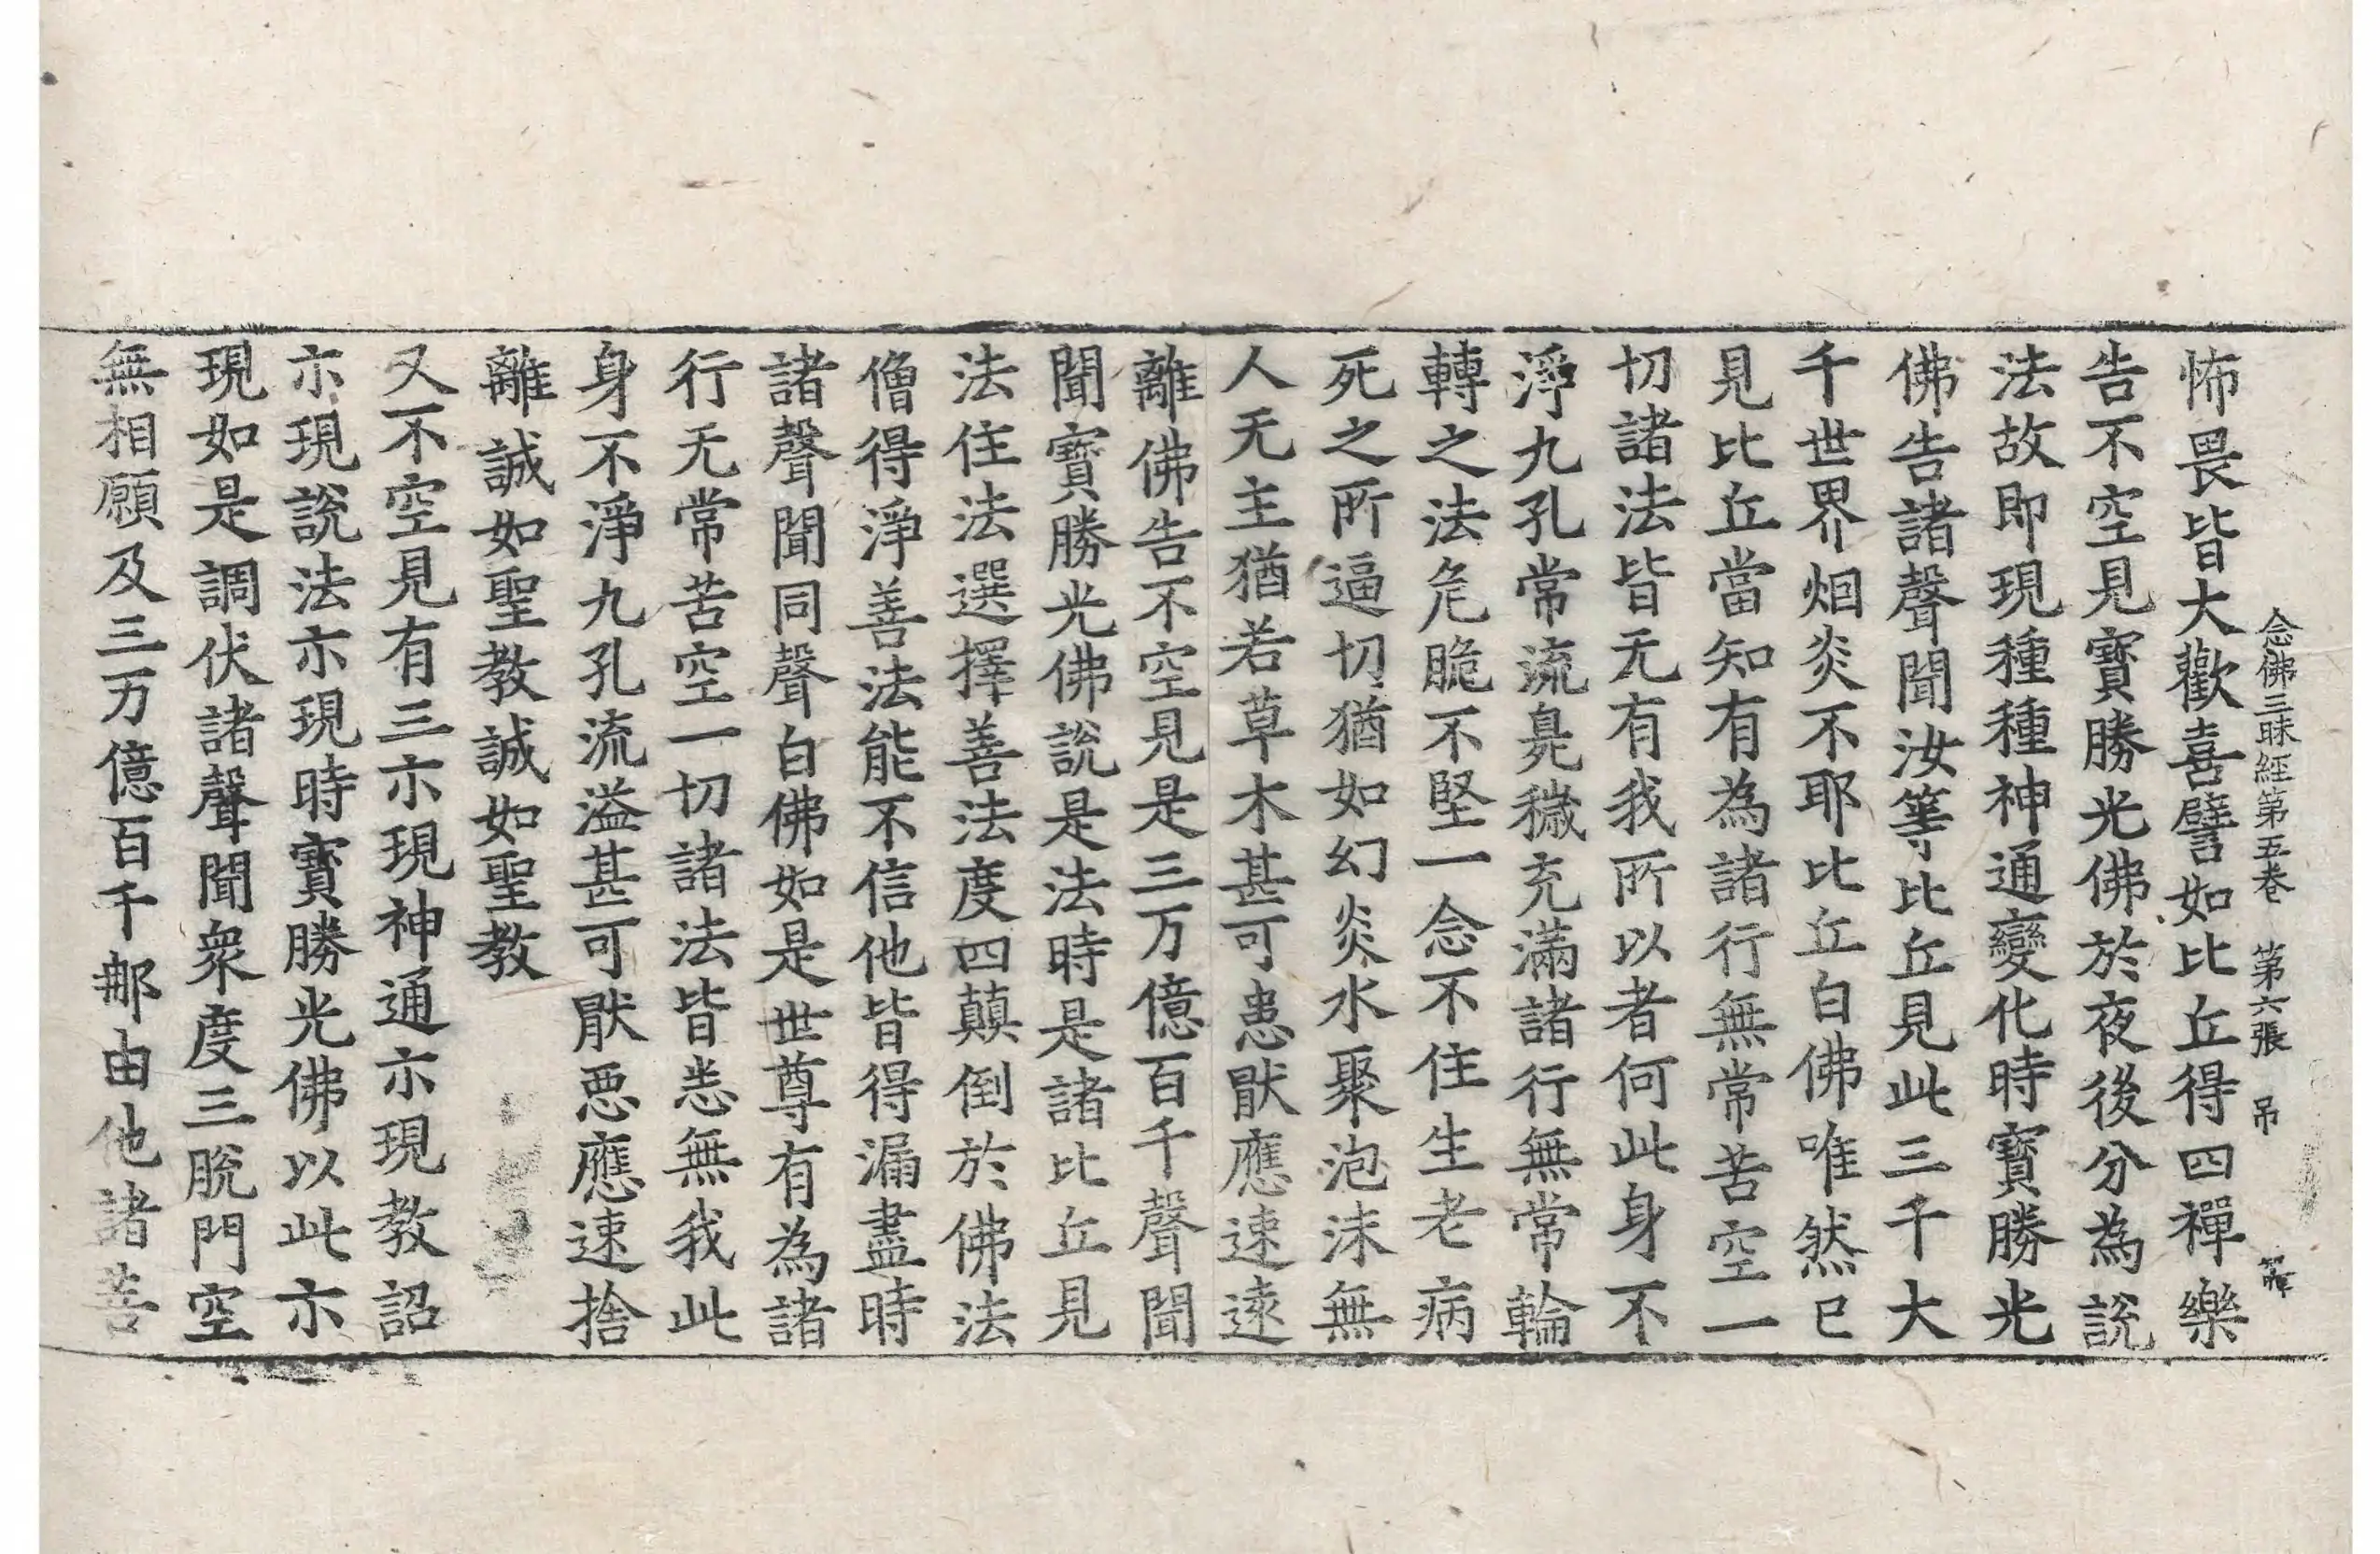 念佛三昧經第五卷　第六張　吊
怖畏皆大歡喜譬如比丘得四禪樂
告不空見寶勝光佛於夜後分為說
法故即現種種神通變化時寶勝光
佛告諸聲聞汝等比丘見此三千大
千世界烟炎不耶比丘白佛唯然已
見比丘當知有為諸行無常苦空一
切諸法皆无有我所以者何此身不
淨九孔常流臰穢充滿諸行無常輪
轉之法危脆不堅一念不住生老病
死之所逼切猶如幻炎水聚泡沫無
人无主猶若草木甚可患猒應速遠
離佛告不空見是三万億百千聲聞
聞寶勝光佛說是法時是諸比丘見
法住法選擇善法度四顛倒於佛法
僧得淨善法能不信他皆得漏盡時
諸聲聞同聲白佛如是世尊有為諸
行无常苦空一切諸法皆悉無我此
身不淨九孔流溢甚可猒惡應速捨
離誠如聖教誠如聖教
又不空見有三示現神通示現教詔
示現說法示現時寶勝光佛以此示
現如是調伏諸聲聞衆度三脫門空
無相願及三万億百千那由他諸菩